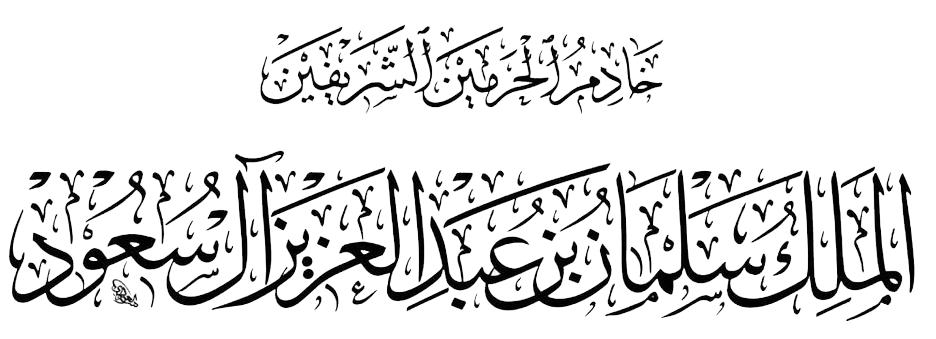 خَادِمُ ٱلْحَرَمَيْنَ ٱلشَّرِيفَيْنَ
المَلِكُ سَلْمَانُ بْنُ عَبْدِ العَزِيزِ آلْ سُعُوْد